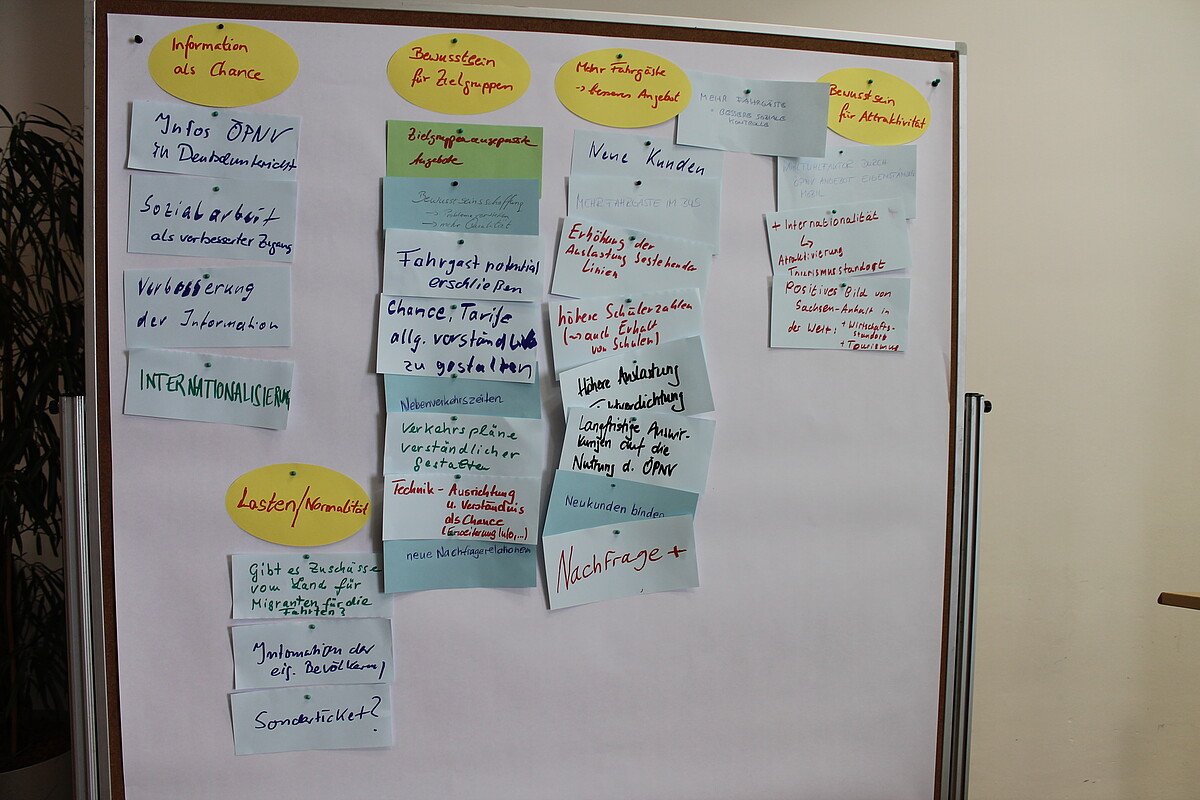 Information
als Chance
Infos ÖPNV
in Deutschunterricht
Sozialarbeit
als verbesserter Zugang
Verbesserung
der Information
INTERNATIONALISIERUNG
Lasten/Normalität
Gibt es Zuschüsse
vom Land für
Migranten für die
Fahrten?
Information der
eig. Bevölkerung
Sonderticket?
Bewusstsein
für Zielgruppen
Zielgruppenangepasste
Angebote
Bewusstseinsschaffung
Fahrgastpotential
erschließen
Chance, Tarife
allg. verständlich
zu gestalten
Nebenverkehrszeiten
Verkehrspläne
verständlicher
gestalten
Technik - Ausrichtung
u. Verständnis
als Chance
(Erweiterung Info,...)
neue Nachfragerelationen
Mehr Fahrgäste
-> besseres Angebot
MEHR FAHRGÄSTE
= BESSERE SOZIALE
KONTROLLE
Neue Kunden
MEHR FAHRGÄSTE IM BUS
Erhöhung der
Auslastung bestehender
Linien
höhere Schülerzahlen
(-> auch Erhalt
von Schulen)
Höhere Auslastung
Taktverdichtung
Langfristige Auswir-
kungen auf die
Nutzung d. ÖPNV
Neukunden binden
Nachfrage +
Bewusstsein
für Attraktivität
DURCH
ÖPNV ANGEBOT EIGENSTÄNDIG
MOBIL
+ Internationalität
↳
Attraktivierung
Tourismusstandort
Positives Bild von
Sachsen-Anhalt in
der Welt: + Wirtschafts-
standort
+ Tourismus